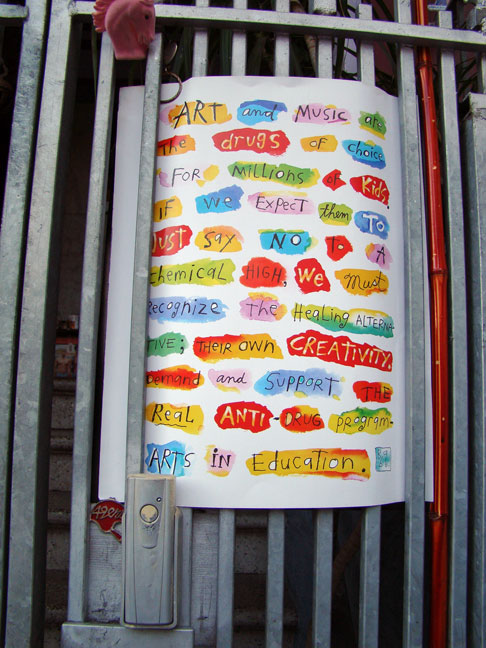 ART and MUSIC are
The drugs of choice
FOR Millions of Kids.
IF we Expect them To
Just Say NO To A
Chemical HIGH, We Must
Recognize The Healing ALTERNA
TIVE; THEIR OWN CREATIVITY.
Demand and SUPPORT THE
Real ANTI-DRUG program-
ARTS iN Education.